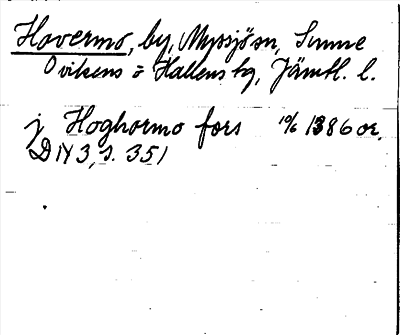 Hovermo, by, Myssjö sn, Sunne
Ovikens o Hallens tg, Jämtl. l.
j Hoghormo fors 10/6 1386 or.
DN 3, s. 351